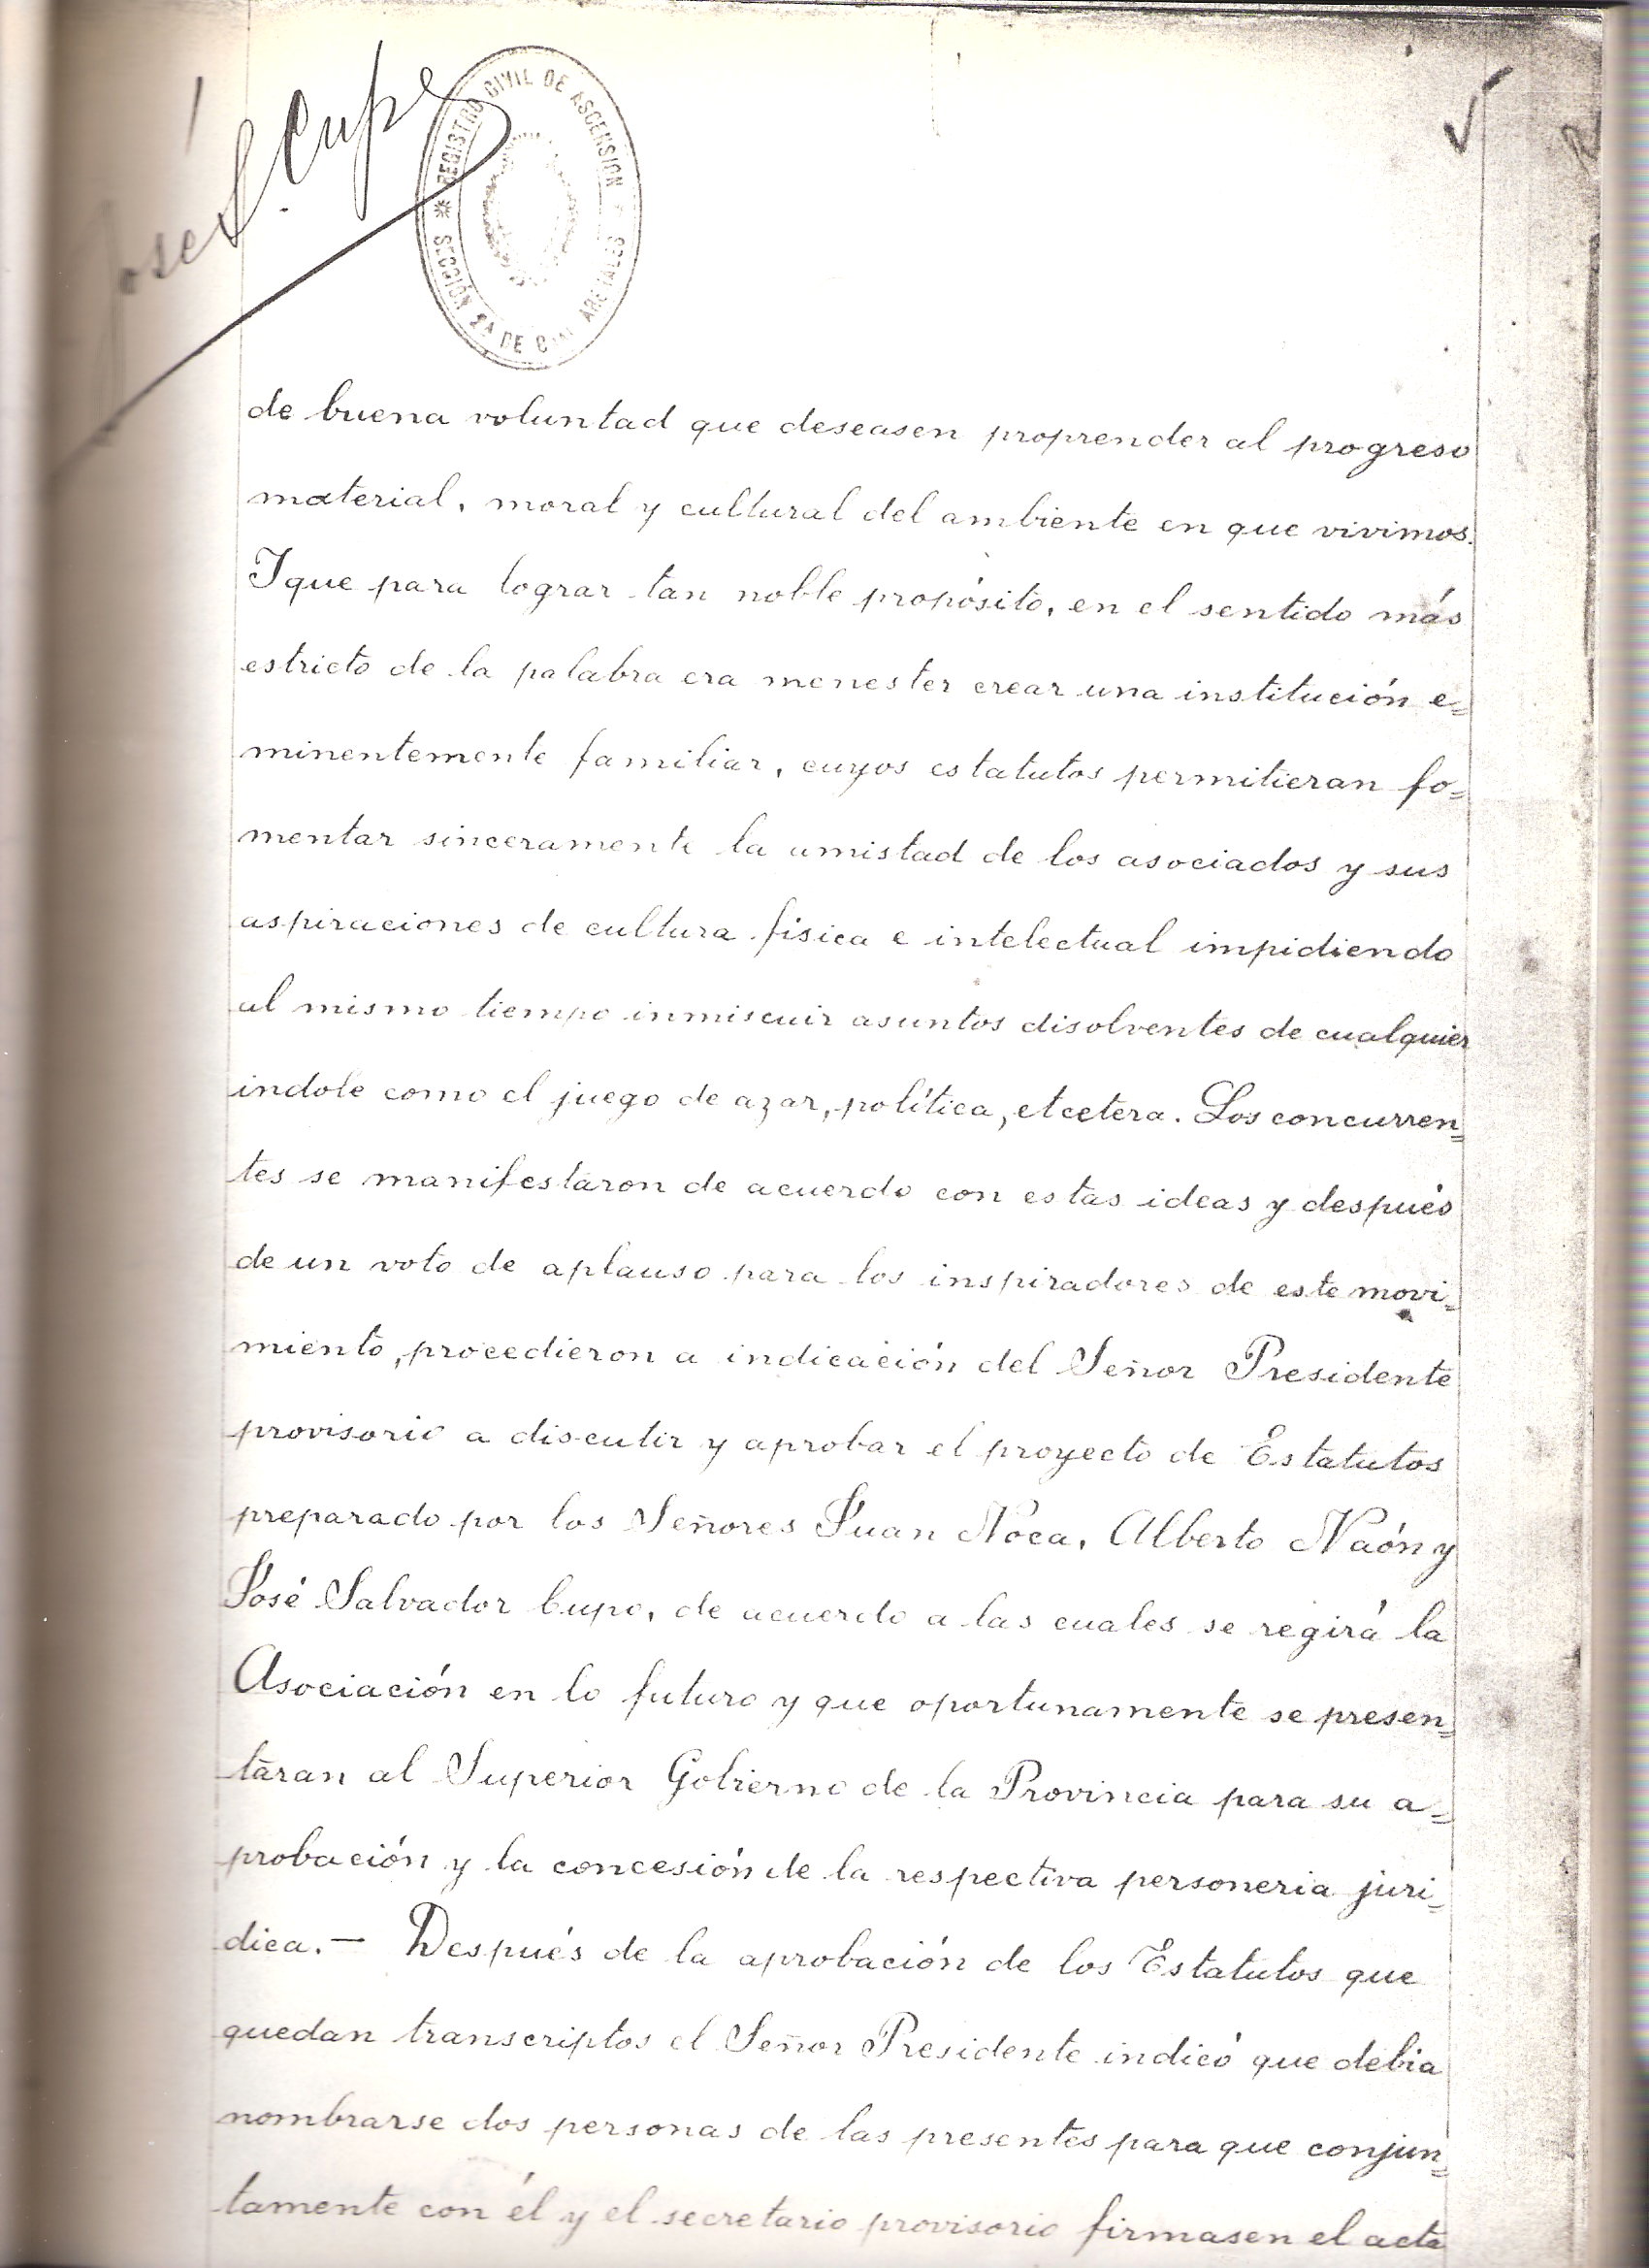 José S. Cupo
REGISTRO CIVIL DE ASCENSION
SECCIÓN 2ª DE ARENALES
de buena voluntad que deseasen proprender al progreso
material, moral y cultural del ambiente en que vivimos.
I que para lograr tan noble propósito, en el sentido más
estricto de la palabra era menester crear una institución e=
minentemente familiar, cuyos estatutos permitieran fo=
mentar sinceramente la amistad de los asociados y sus
aspiraciones de cultura fisica e intelectual impidiendo
al mismo tiempo inmiscuir asuntos disolventes de cualquier
indole como el juego de azar, política, etcetera. Los concurren=
tes se manifestaron de acuerdo con estas ideas y después
de un voto de aplauso para los inspiradores de este movi=
miento, procedieron a indicación del Señor Presidente
provisorio a discutir y aprobar el proyecto de Estatutos
preparado por los Señores Juan Roca, Alberto Naón y
José Salvador Cupo, de acuerdo a las cuales se regirá la
Asociación en lo futuro y que oportunamente se presen=
taran al Superior Gobierno de la Provincia para su a=
probación y la concesión de la respectiva personeria juri=
dica.— Después de la aprobación de los Estatutos que
quedan transcriptos el Señor Presidente indicó que debia
nombrarse dos personas de las presentes para que conjun=
tamente con él y el secretario provisorio firmasen el acta